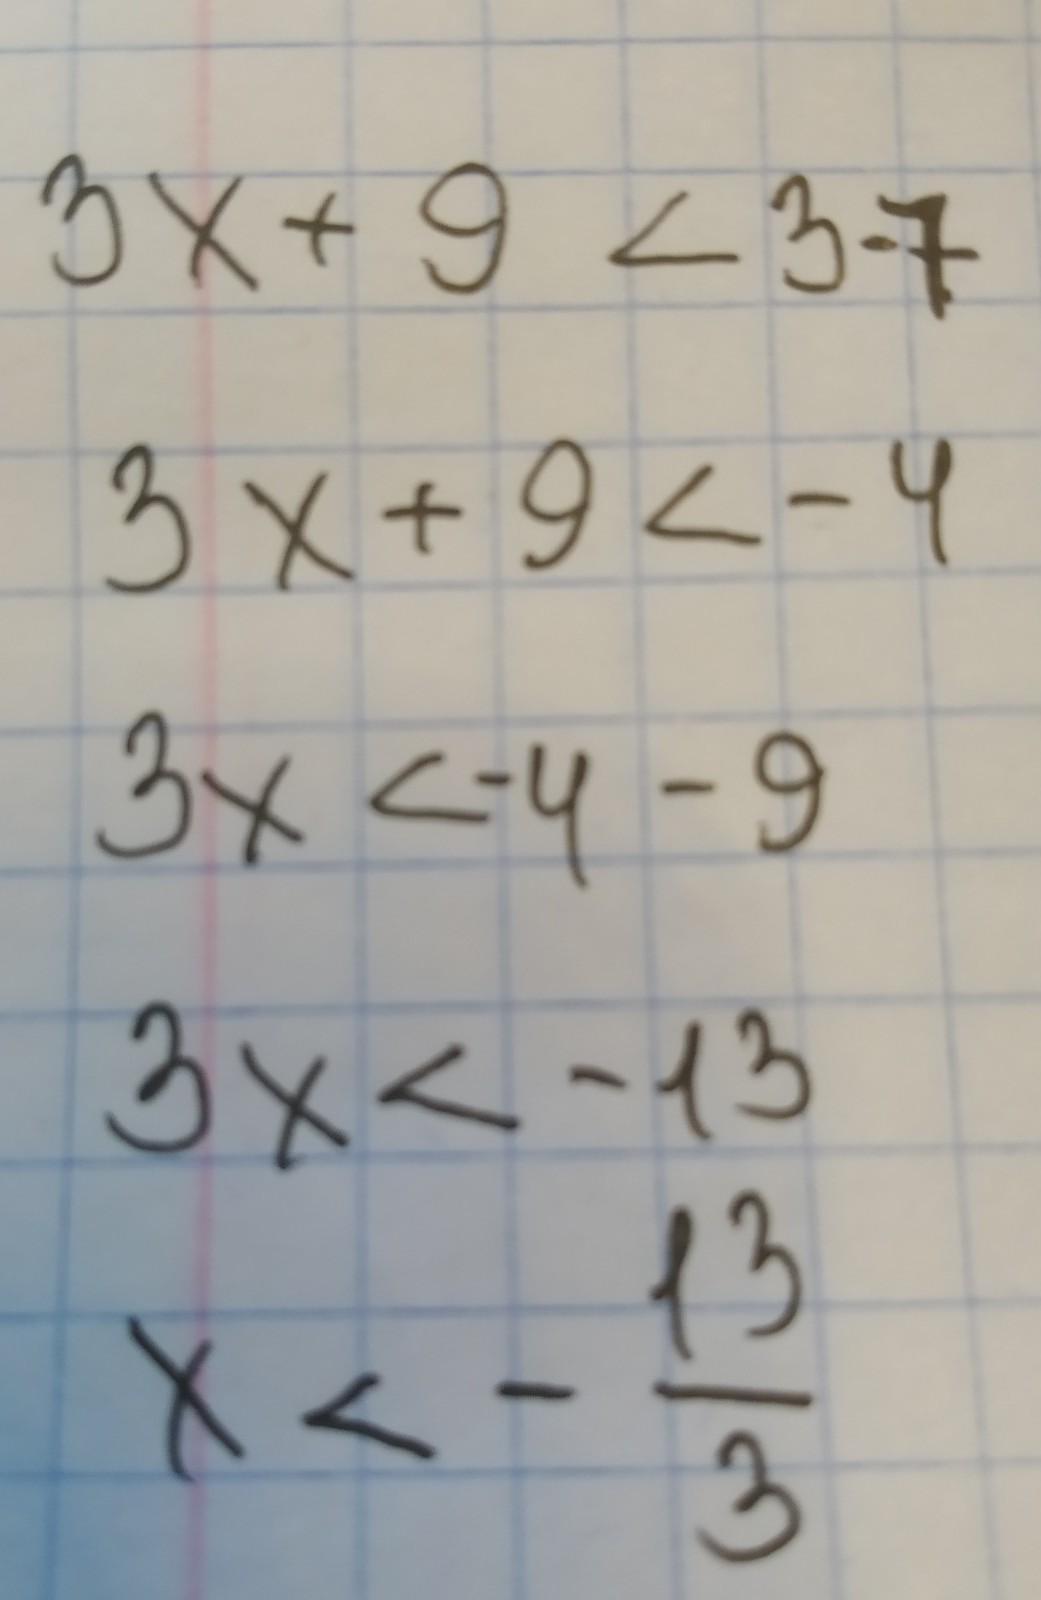 3x + 9 < 3-7
3x + 9 < - 4
3x < -4 - 9
3x < - 13
x < - 13/3